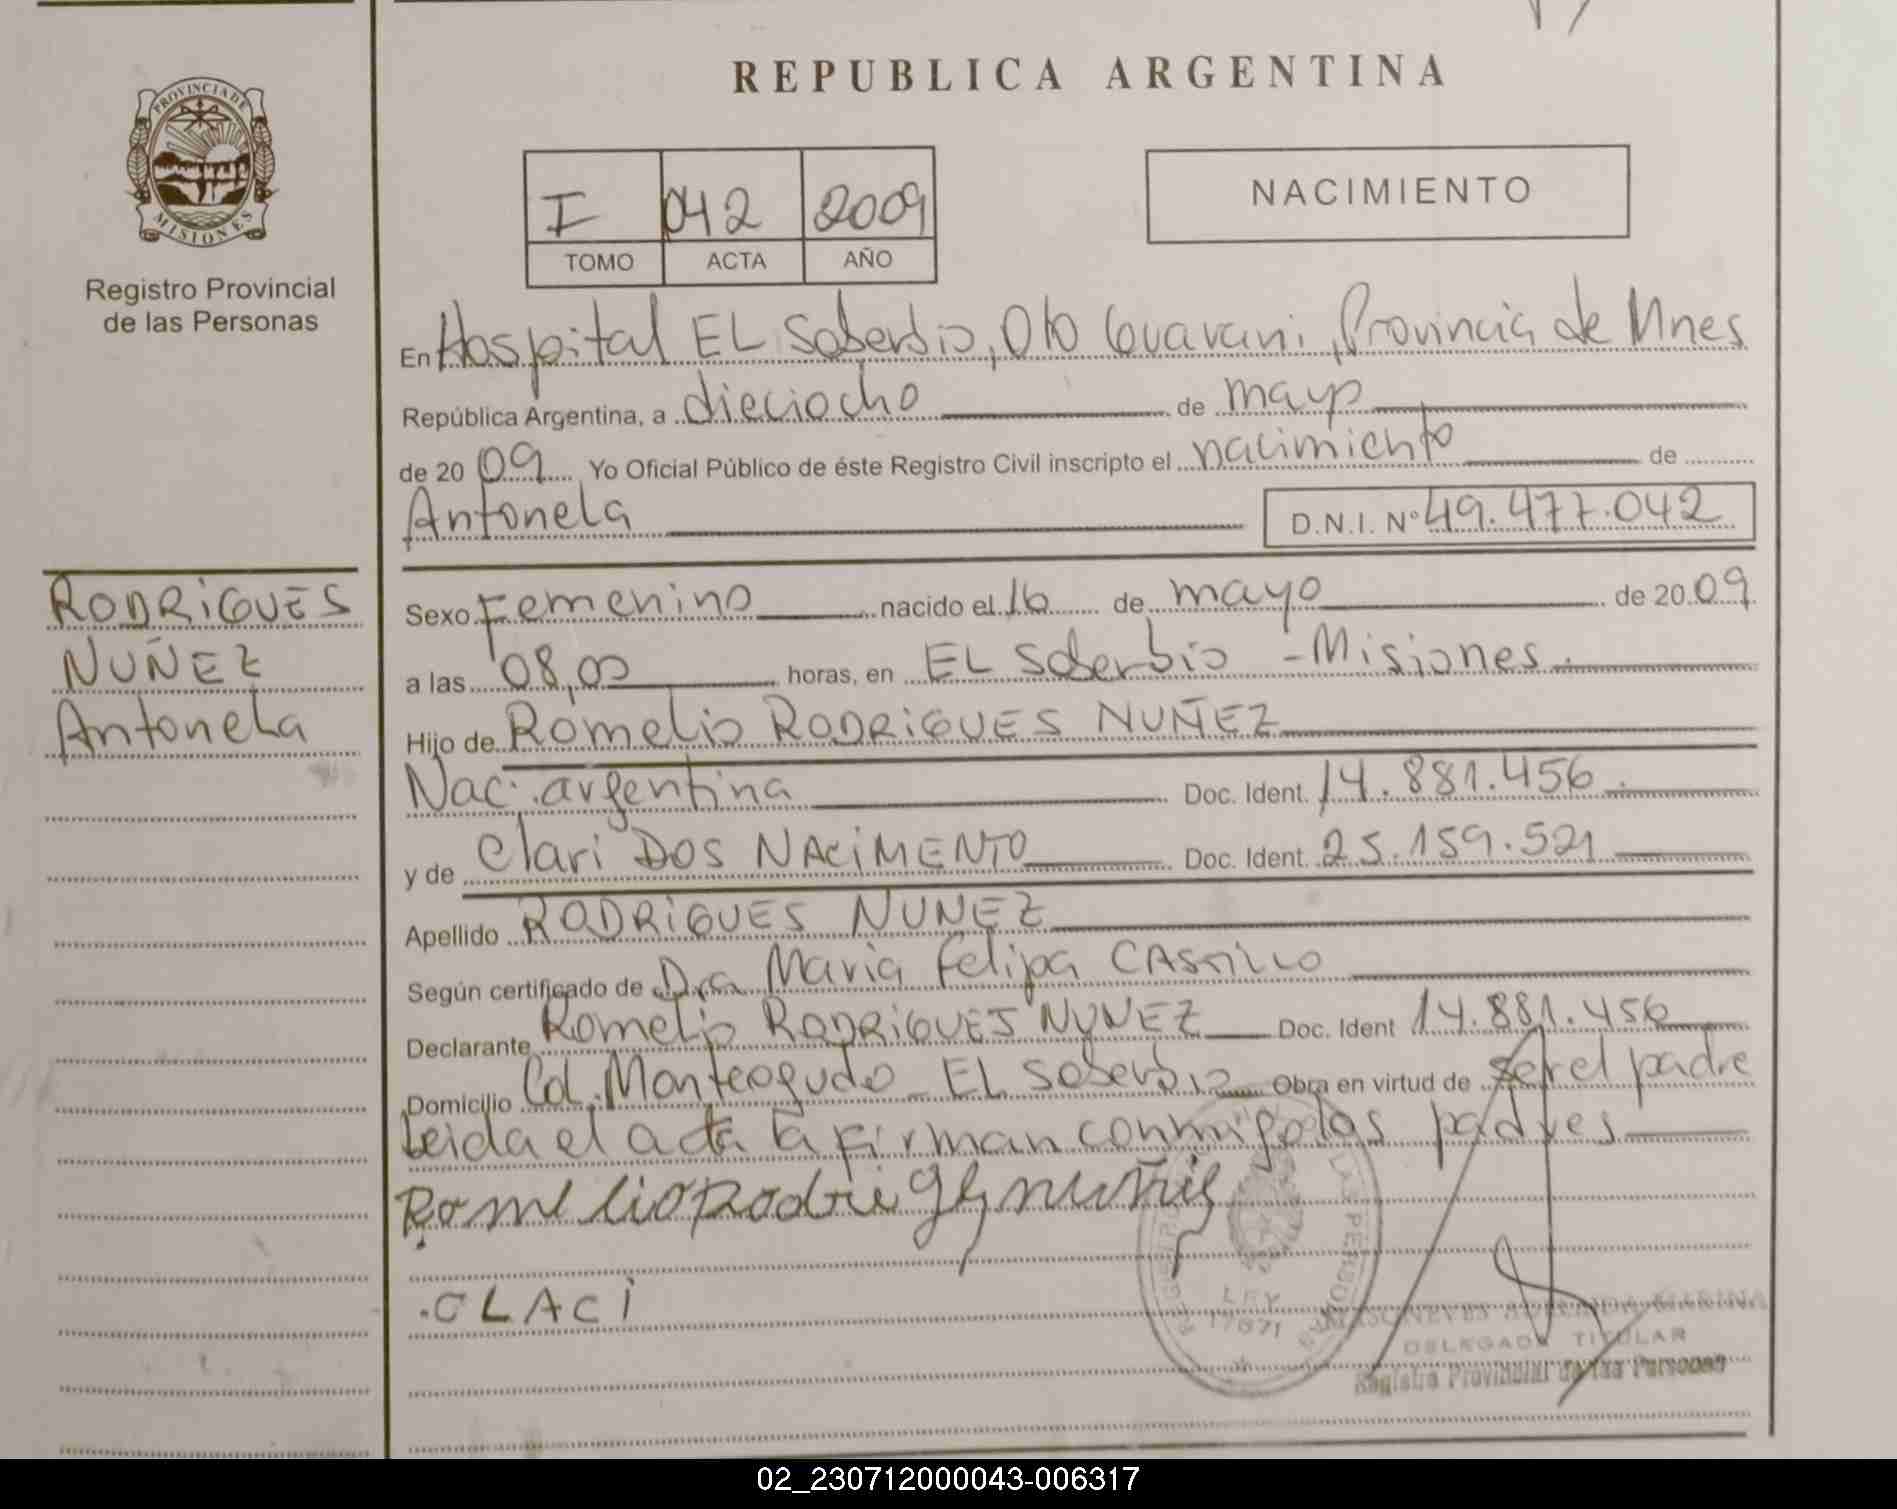 REPUBLICA ARGENTINA
PROVINCIA DE
MISIONES
Registro Provincial
de las Personas
I 042 2009
TOMO ACTA AÑO
NACIMIENTO
En Hospital EL Soberbio, Dto Guarani, Provincia de Mnes
República Argentina, a dieciocho de mayo
de 2009 Yo Oficial Público de éste Registro Civil inscripto el nacimiento de
Antonela D.N.I. Nº 49.477.042
RODRiGUES
NUÑEZ
Antonela
Sexo Femenino nacido el 16 de mayo de 2009
a las 08,00 horas, en EL Soberbio - Misiones.
Hijo de Romelio RODRiGUES NUÑEZ
Nac. argentina Doc. Ident. 14.881.456.
y de Clari DOS NACiMENTO Doc. Ident. 25.159.521
Apellido RODRiGUES NUNEZ
Según certificado de Dra Maria Felipa CASTILLO
Declarante Romelio RODRiGUES NUNEZ Doc. Ident 14.881.456
Domicilio Col. Monteagudo - EL Soberbio Obra en virtud de ser el padre
Leida el acta la firman conmigo los padres
Romelio
.CLACi
REGISTRO LAS PERSONAS
LEY
17671
MARINA
DELEGADA TITULAR
Registro Provincial de las Personas
02_230712000043-006317